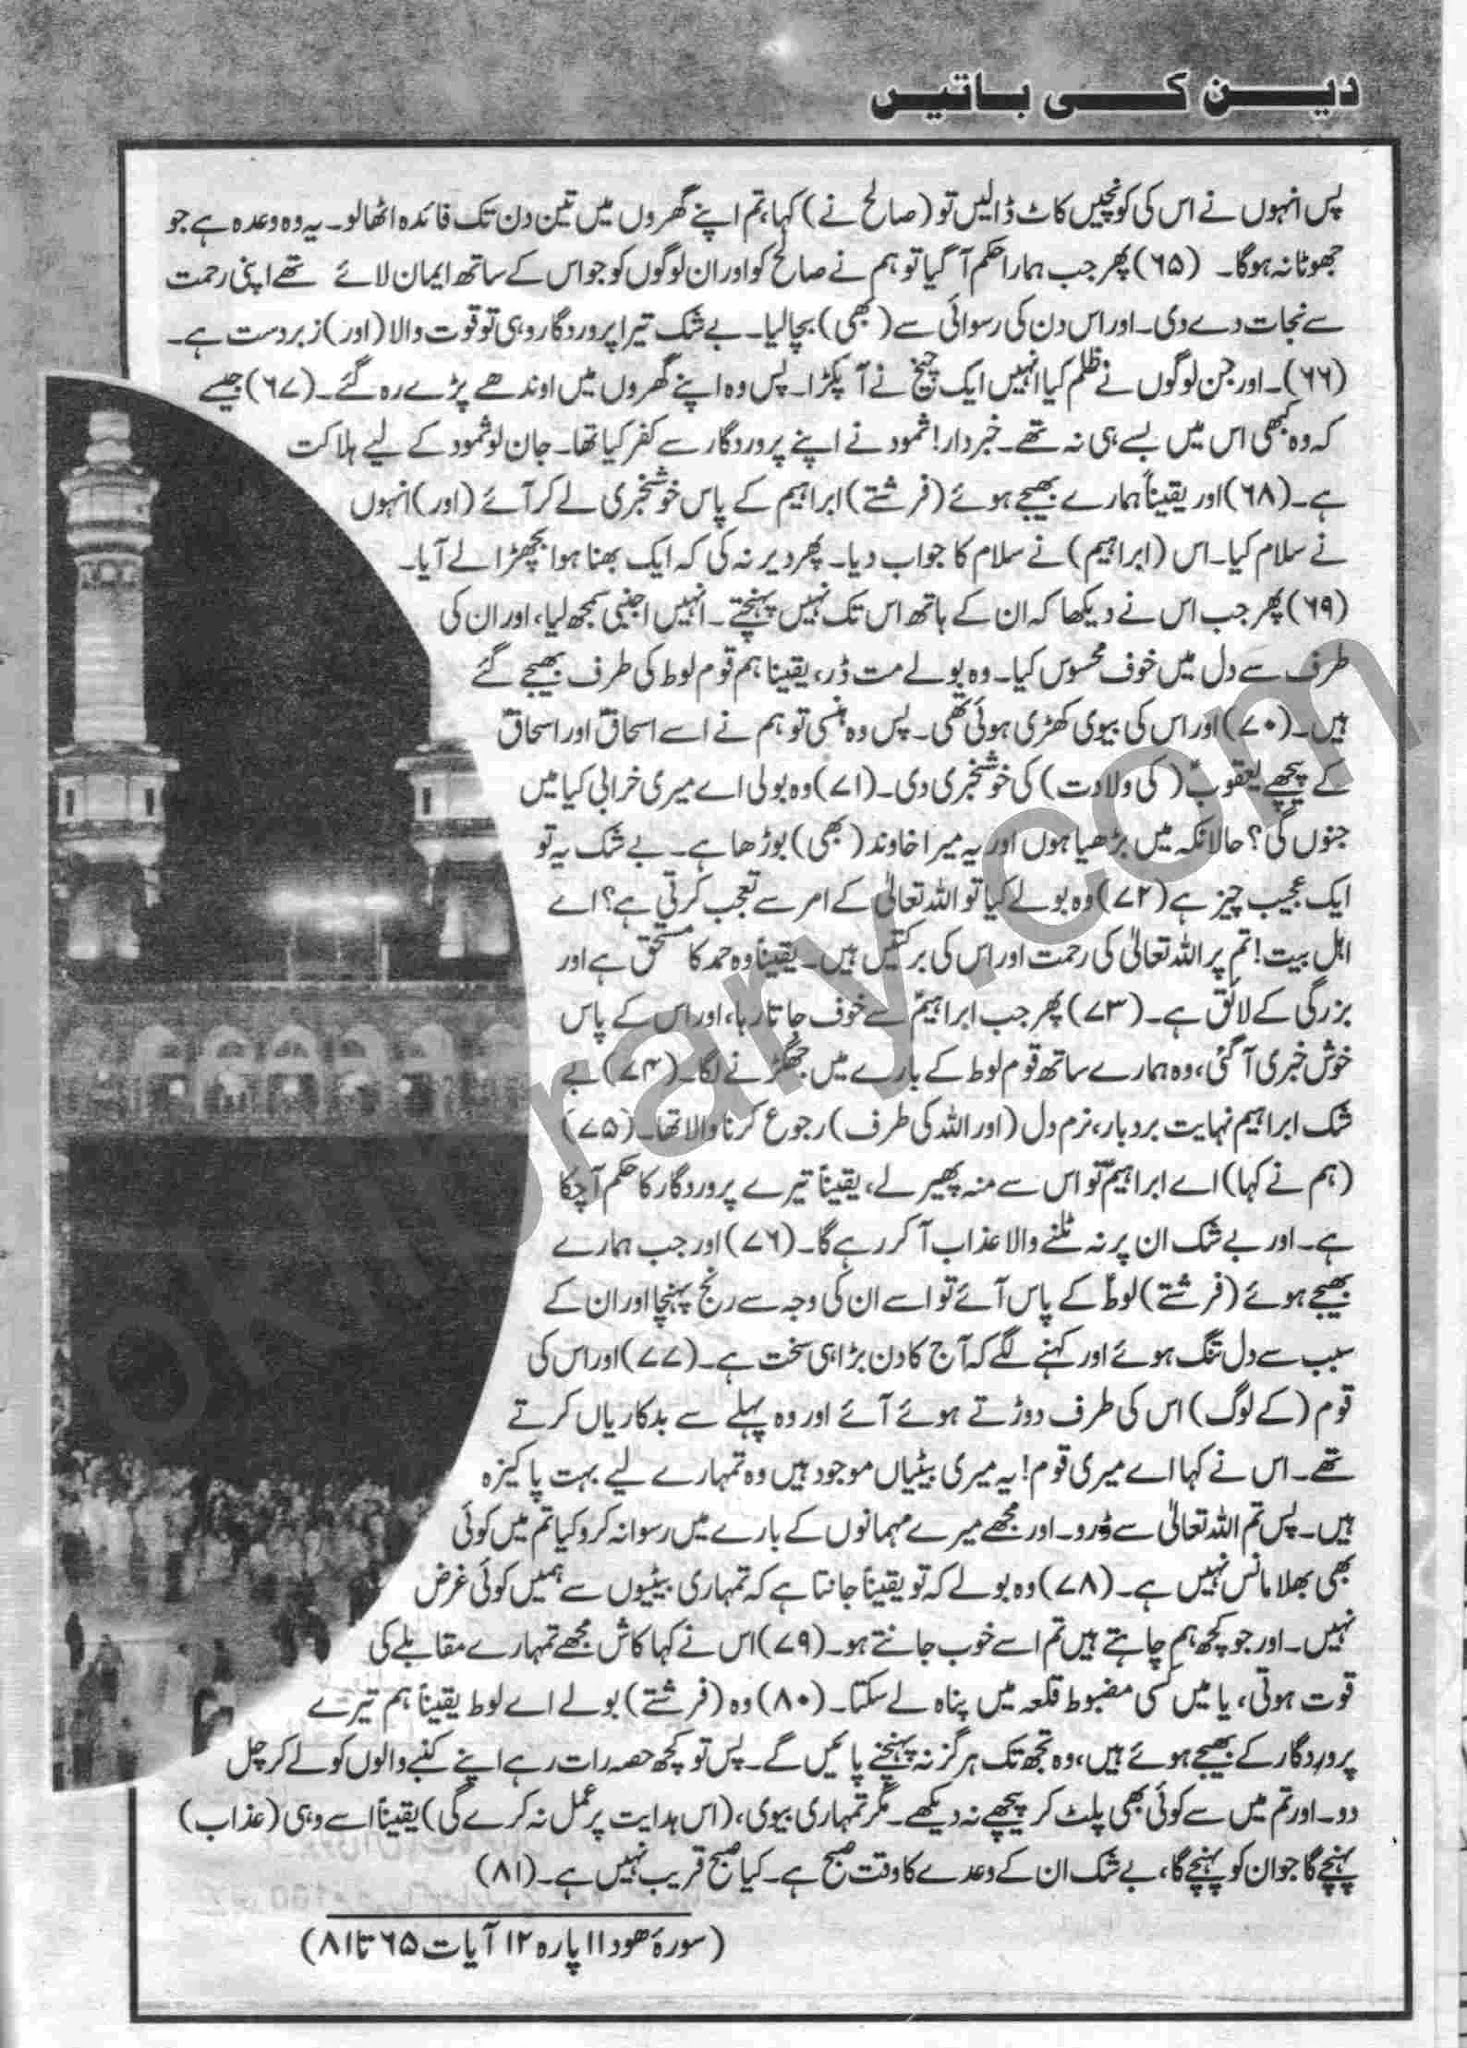 دین کی باتیں
پس انہوں نے اس کی کونچیں کاٹ ڈالیں تو (صالح نے) کہا، تم اپنے گھروں میں تین دن تک فائدہ اٹھا لو۔ یہ وہ وعدہ ہے جو
جھوٹا نہ ہوگا۔ (۶۵) پھر جب ہمارا حکم آ گیا تو ہم نے صالحؑ کو اور ان لوگوں کو جو اس کے ساتھ ایمان لائے تھے اپنی رحمت
سے نجات دے دی۔ اور اس دن کی رسوائی سے (بھی) بچا لیا۔ بے شک تیرا پروردگار وہی تو قوت والا (اور) زبردست ہے۔
(۶۶)۔ اور جن لوگوں نے ظلم کیا انہیں ایک چیخ نے آ پکڑا۔ پس وہ اپنے گھروں میں اوندھے پڑے رہ گئے۔ (۶۷) جیسے
کہ وہ کبھی اس میں بسے ہی نہ تھے۔ خبردار! ثمود نے اپنے پروردگار سے کفر کیا تھا۔ جان لو ثمود کے لیے ہلاکت
ہے۔ (۶۸) اور یقیناً ہمارے بھیجے ہوئے (فرشتے) ابراہیم کے پاس خوشخبری لے کر آئے (اور) انہوں
نے سلام کیا۔ اس (ابراہیم) نے سلام کا جواب دیا۔ پھر دیر نہ کی کہ ایک بھنا ہوا بچھڑا لے آیا۔
(۶۹) پھر جب اس نے دیکھا کہ ان کے ہاتھ اس تک نہیں پہنچتے۔ انہیں اجنبی سمجھ لیا، اور ان کی
طرف سے دل میں خوف محسوس کیا۔ وہ بولے مت ڈر، یقینا ہم قوم لوط کی طرف بھیجے گئے
ہیں۔ (۷۰) اور اس کی بیوی کھڑی ہوئی تھی۔ پس وہ ہنسی تو ہم نے اسے اسحاقؑ اور اسحاقؑ
کے پیچھے یعقوبؑ (کی ولادت) کی خوشخبری دی۔ (۷۱) وہ بولی اے میری خرابی کیا میں
جنوں گی؟ حالانکہ میں بڑھیا ہوں اور یہ میرا خاوند (بھی) بوڑھا ہے۔ بے شک یہ تو
ایک عجیب چیز ہے (۷۲) وہ بولے کیا تو اللہ تعالیٰ کے امر سے تعجب کرتی ہے؟ اے
اہل بیت! تم پر اللہ تعالیٰ کی رحمت اور اس کی برکتیں ہیں۔ یقیناً وہ حمد کا مستحق ہے اور
بزرگی کے لائق ہے۔ (۷۳) پھر جب ابراہیمؑ سے خوف جاتا رہا، اور اس کے پاس
خوش خبری آ گئی، وہ ہمارے ساتھ قوم لوط کے بارے میں جھگڑنے لگا۔ (۷۴) بے
شک ابراہیم نہایت بردبار، نرم دل (اور اللہ کی طرف) رجوع کرنا والا تھا۔ (۷۵)
(ہم نے کہا) اے ابراہیمؑ تو اس سے منہ پھیر لے، یقیناً تیرے پروردگار کا حکم آ چکا
ہے۔ اور بے شک ان پر نہ ٹلنے والا عذاب آ کر رہے گا۔ (۷۶) اور جب ہمارے
بھیجے ہوئے (فرشتے) لوطؑ کے پاس آئے تو اسے ان کی وجہ سے رنج پہنچا اور ان کے
سبب سے دل تنگ ہوئے اور کہنے لگے کہ آج کا دن بڑا ہی سخت ہے۔ (۷۷) اور اس کی
قوم (کے لوگ) اس کی طرف دوڑتے ہوئے آئے اور وہ پہلے سے بدکاریاں کرتے
تھے۔ اس نے کہا اے میری قوم! یہ میری بیٹیاں موجود ہیں وہ تمہارے لیے بہت پاکیزہ
ہیں۔ پس تم اللہ تعالیٰ سے ڈرو۔ اور مجھے میرے مہمانوں کے بارے میں رسوا نہ کرو کیا تم میں کوئی
بھی بھلا مانس نہیں ہے۔ (۷۸) وہ بولے کہ تو یقیناً جانتا ہے کہ تمہاری بیٹیوں سے ہمیں کوئی غرض
نہیں۔ اور جو کچھ ہم چاہتے ہیں تم اسے خوب جانتے ہو۔ (۷۹) اس نے کہا کاش مجھے تمہارے مقابلے کی
قوت ہوتی، یا میں کسی مضبوط قلعہ میں پناہ لے سکتا۔ (۸۰) وہ (فرشتے) بولے اے لوط یقیناً ہم تیرے
پروردگار کے بھیجے ہوئے ہیں، وہ تجھ تک ہرگز نہ پہنچنے پائیں گے۔ پس تو کچھ حصہ رات رہے اپنے کنبے والوں کو لے کر چل
دو۔ اور تم میں سے کوئی بھی پلٹ کر پیچھے نہ دیکھے۔ مگر تمہاری بیوی، (اس ہدایت پر عمل نہ کرے گی) یقیناً اسے وہی (عذاب)
پہنچے گا جو ان کو پہنچے گا، بے شک ان کے وعدے کا وقت صبح ہے۔ کیا صبح قریب نہیں ہے۔ (۸۱)
(سورۂ ھود ۱۱ پارہ ۱۲ آیات ۶۵ تا ۸۱)
oklibrary.com